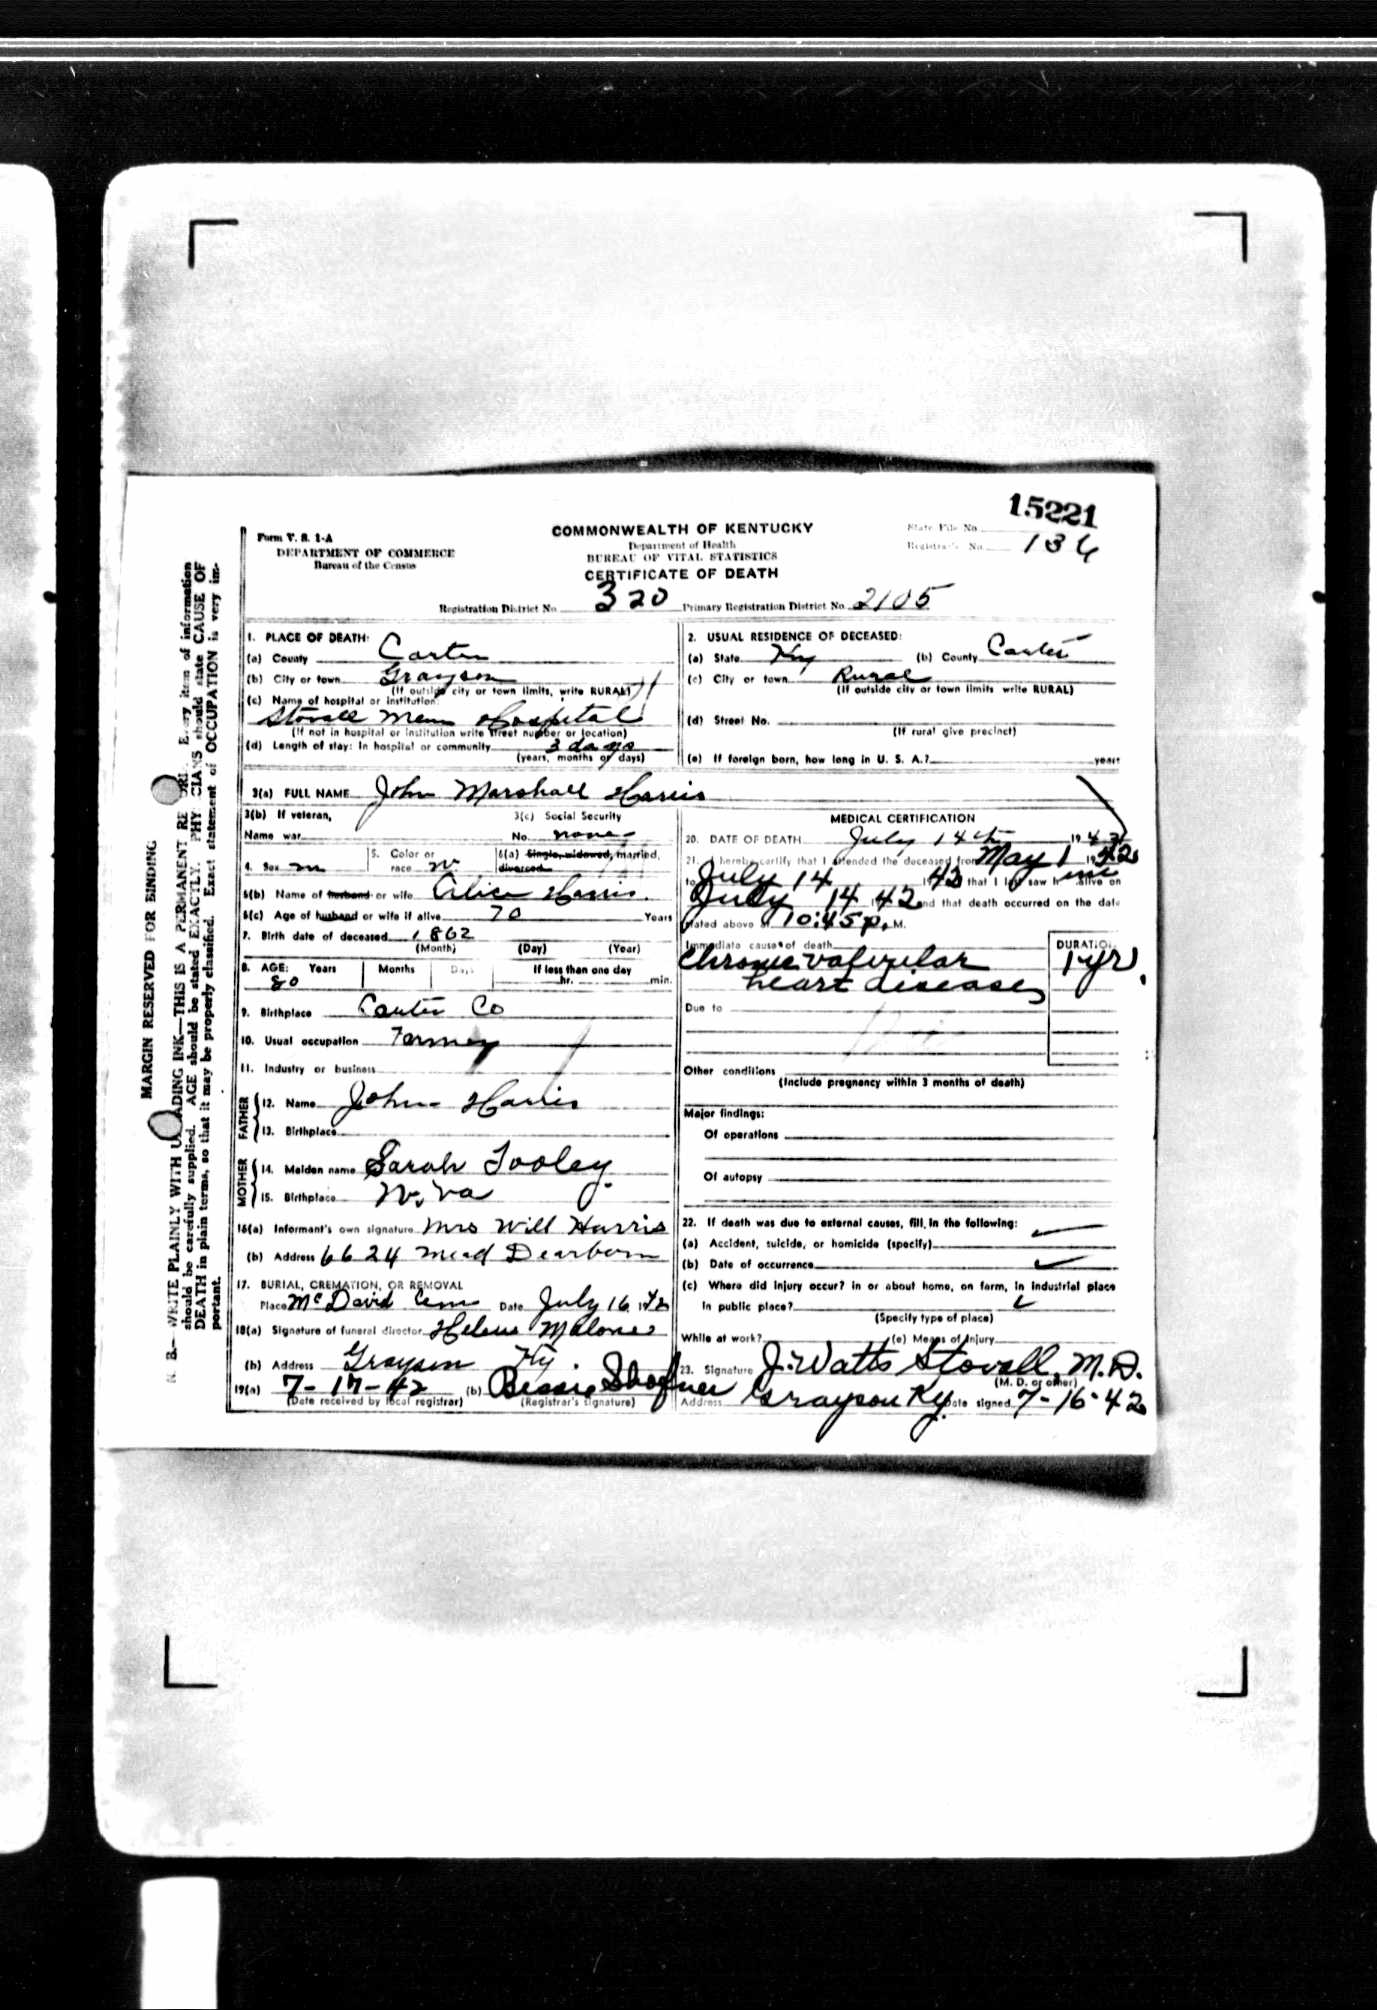 15221
Form V. S. 1-A
DEPARTMENT OF COMMERCE
Bureau of the Census
COMMONWEALTH OF KENTUCKY
Department of Health
BUREAU OF VITAL STATISTICS
CERTIFICATE OF DEATH
State File No.
Registrar's No. 136
Registration District No. 320 Primary Registration District No. 2105
MARGIN RESERVED FOR BINDING
N. B.— WRITE PLAINLY WITH UNFADING INK—THIS IS A PERMANENT RECORD. Every item of information
should be carefully supplied. AGE should be stated EXACTLY. PHYSICIANS should state CAUSE OF
DEATH in plain terms, so that it may be properly classified. Exact statement of OCCUPATION is very im-
portant.
1. PLACE OF DEATH:
(a) County Carter
(b) City or town Grayson
(If outside city or town limits, write RURAL)
(c) Name of hospital or institution:
Stovall Mem Hospital
(If not in hospital or institution write street number or location)
(d) Length of stay: In hospital or community 3 days
(years, months or days)
2. USUAL RESIDENCE OF DECEASED:
(a) State Ky (b) County Carter
(c) City or town Rural
(If outside city or town limits write RURAL)
(d) Street No.
(If rural give precinct)
(e) If foreign born, how long in U. S. A.? years
3(a) FULL NAME John Marshall Harris
3(b) If veteran, 3(c) Social Security
Name war No. none
4. Sex m 5. Color or race w 6(a) Single, widowed, married, divorced
6(b) Name of husband or wife Alice Harris
6(c) Age of husband or wife if alive 70 Years
7. Birth date of deceased 1862
(Month) (Day) (Year)
8. AGE: Years Months Days If less than one day
80 hr. min.
9. Birthplace Carter Co
10. Usual occupation Farmer
11. Industry or business
FATHER
12. Name John Harris
13. Birthplace
MOTHER
14. Maiden name Sarah Tooley
15. Birthplace W. Va
16(a) Informant's own signature Mrs Will Harris
(b) Address 6624 Mead Dearborn
17. BURIAL, CREMATION, OR REMOVAL
Place McDavid Cem Date July 16 1942
18(a) Signature of funeral director Helena Malone
(b) Address Grayson Ky.
19(a) 7-17-42 (b) Bessie Shofner
(Date received by local registrar) (Registrar's signature)
MEDICAL CERTIFICATION
20. DATE OF DEATH July 14th 1942
21. I hereby certify that I attended the deceased from May 1 1942
to July 14 1942 that I last saw him alive on
July 14 42 and that death occurred on the date
stated above at 10:45 p. M.
Immediate cause of death DURATION
Chronic valvular 1 yr
heart disease
Due to
Other conditions
(Include pregnancy within 3 months of death)
Major findings:
Of operations
Of autopsy
22. If death was due to external causes, fill in the following:
(a) Accident, suicide, or homicide (specify)
(b) Date of occurrence
(c) Where did injury occur? in or about home, on farm, in industrial place
In public place?
(Specify type of place)
While at work? (e) Means of Injury
23. Signature J. Watts Stovall, M.D.
(M. D. or other)
Address Grayson Ky Date signed 7-16-42